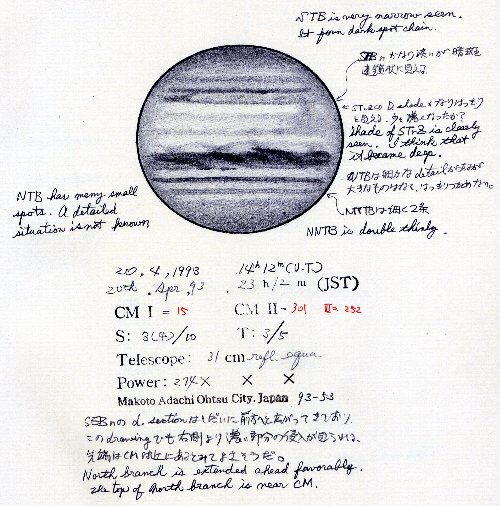 NTB is very narrow seen.
It form dark spot chain.
SEBnかなり濃いが暗斑を
連鎖状に見える
STrZのD. shadeかなりはっきり
と見える。少し濃くなったか?
shade of STrZ is clearly
seen. I think that
it became deep.
NTBは細かなdetailがあるが
大きなものはなく、はっきりつかめない。
NTB has many small
spots. A detailed
situation is not known
NNTBは細く2条
NNTB is double thinly.
20, 4, 1993 14h 12m (U.T)
20th. Apr, 93 . 23 h/2 m (JST)
CM I = 15 CM II = 301 III= 252
S: 3(4)/10 T: 3/5
Telescope: 31 cm refl. equa
Power: 274 × × ×
Makoto Adachi Ohtsu City. Japan 93-53
SEBnのd. sectionはしだいに前方へと広がってきており
このdrawingでも右側より濃い部分の侵入が見られる。
先端はCM付近にあるとみてよさそうだ。
North branch is extended ahead favorably.
The top of north branch is near CM.